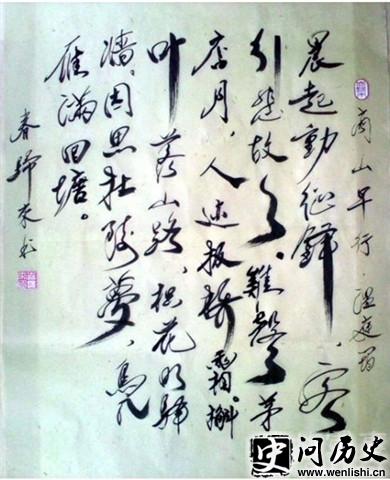 商山早行 温庭筠
晨起動征鐸,客
行悲故乡。雞聲茅
店月,人迹板桥霜。槲
叶落山路,枳花明驿
墙,因思杜陵夢,凫
雁满回塘。
春归来
问历史
www.wenlishi.cn